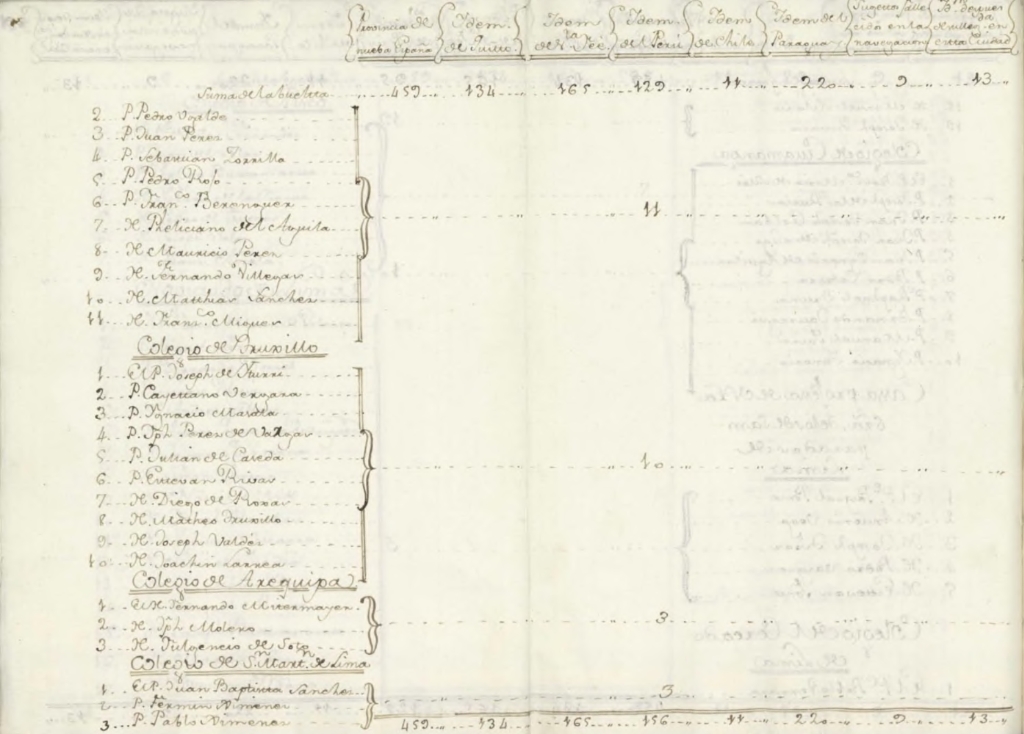 Provincia de nueba España Idem de Quito. Idem de Sta. Feé Idem del Perú Idem de Chile Idem del Paraguay Sugetos falle cidos en la navegacion
Suma de la buelta 459 134 165 129 11 220 9 13
2. P. Pedro Ugalde
3. P. Juan Perez
4. P. Sebastian Zorrilla
5. P. Pedro Roso
6. P. Franco. Berenguer 11
7. H. Feliciano del Aguila
8. H. Mauricio Perez
9. H. Fernando Villegas
10. H. Matthias Sanchez
11. H. Franco. Miguez
Colegio de Truxillo
1. El P. Joseph de Iturri
2. P. Cayetano Vergara
3. P. Ygnacio
4. P. Jph Perez de Vargas
5. P. Julian de Caseda 10
6. P. Estevan Rivas
7. H. Diego de Roxas
8. H. Matheo Truxillo
9. H. Joseph Valdés
10. H. Joachin Larrea
Colegio de Arequipa
1. El H. Fernando Mitermayer
2. H. Jph Molero 3
3. H. Fulgencio de Soto
Colegio de Sn. Martn. de Lima
1. El P. Juan Baptista Sanchez
2. P. Fermin Ximenez 3
3. P. Pablo Ximenez
459 134 165 156 11 220 9 13